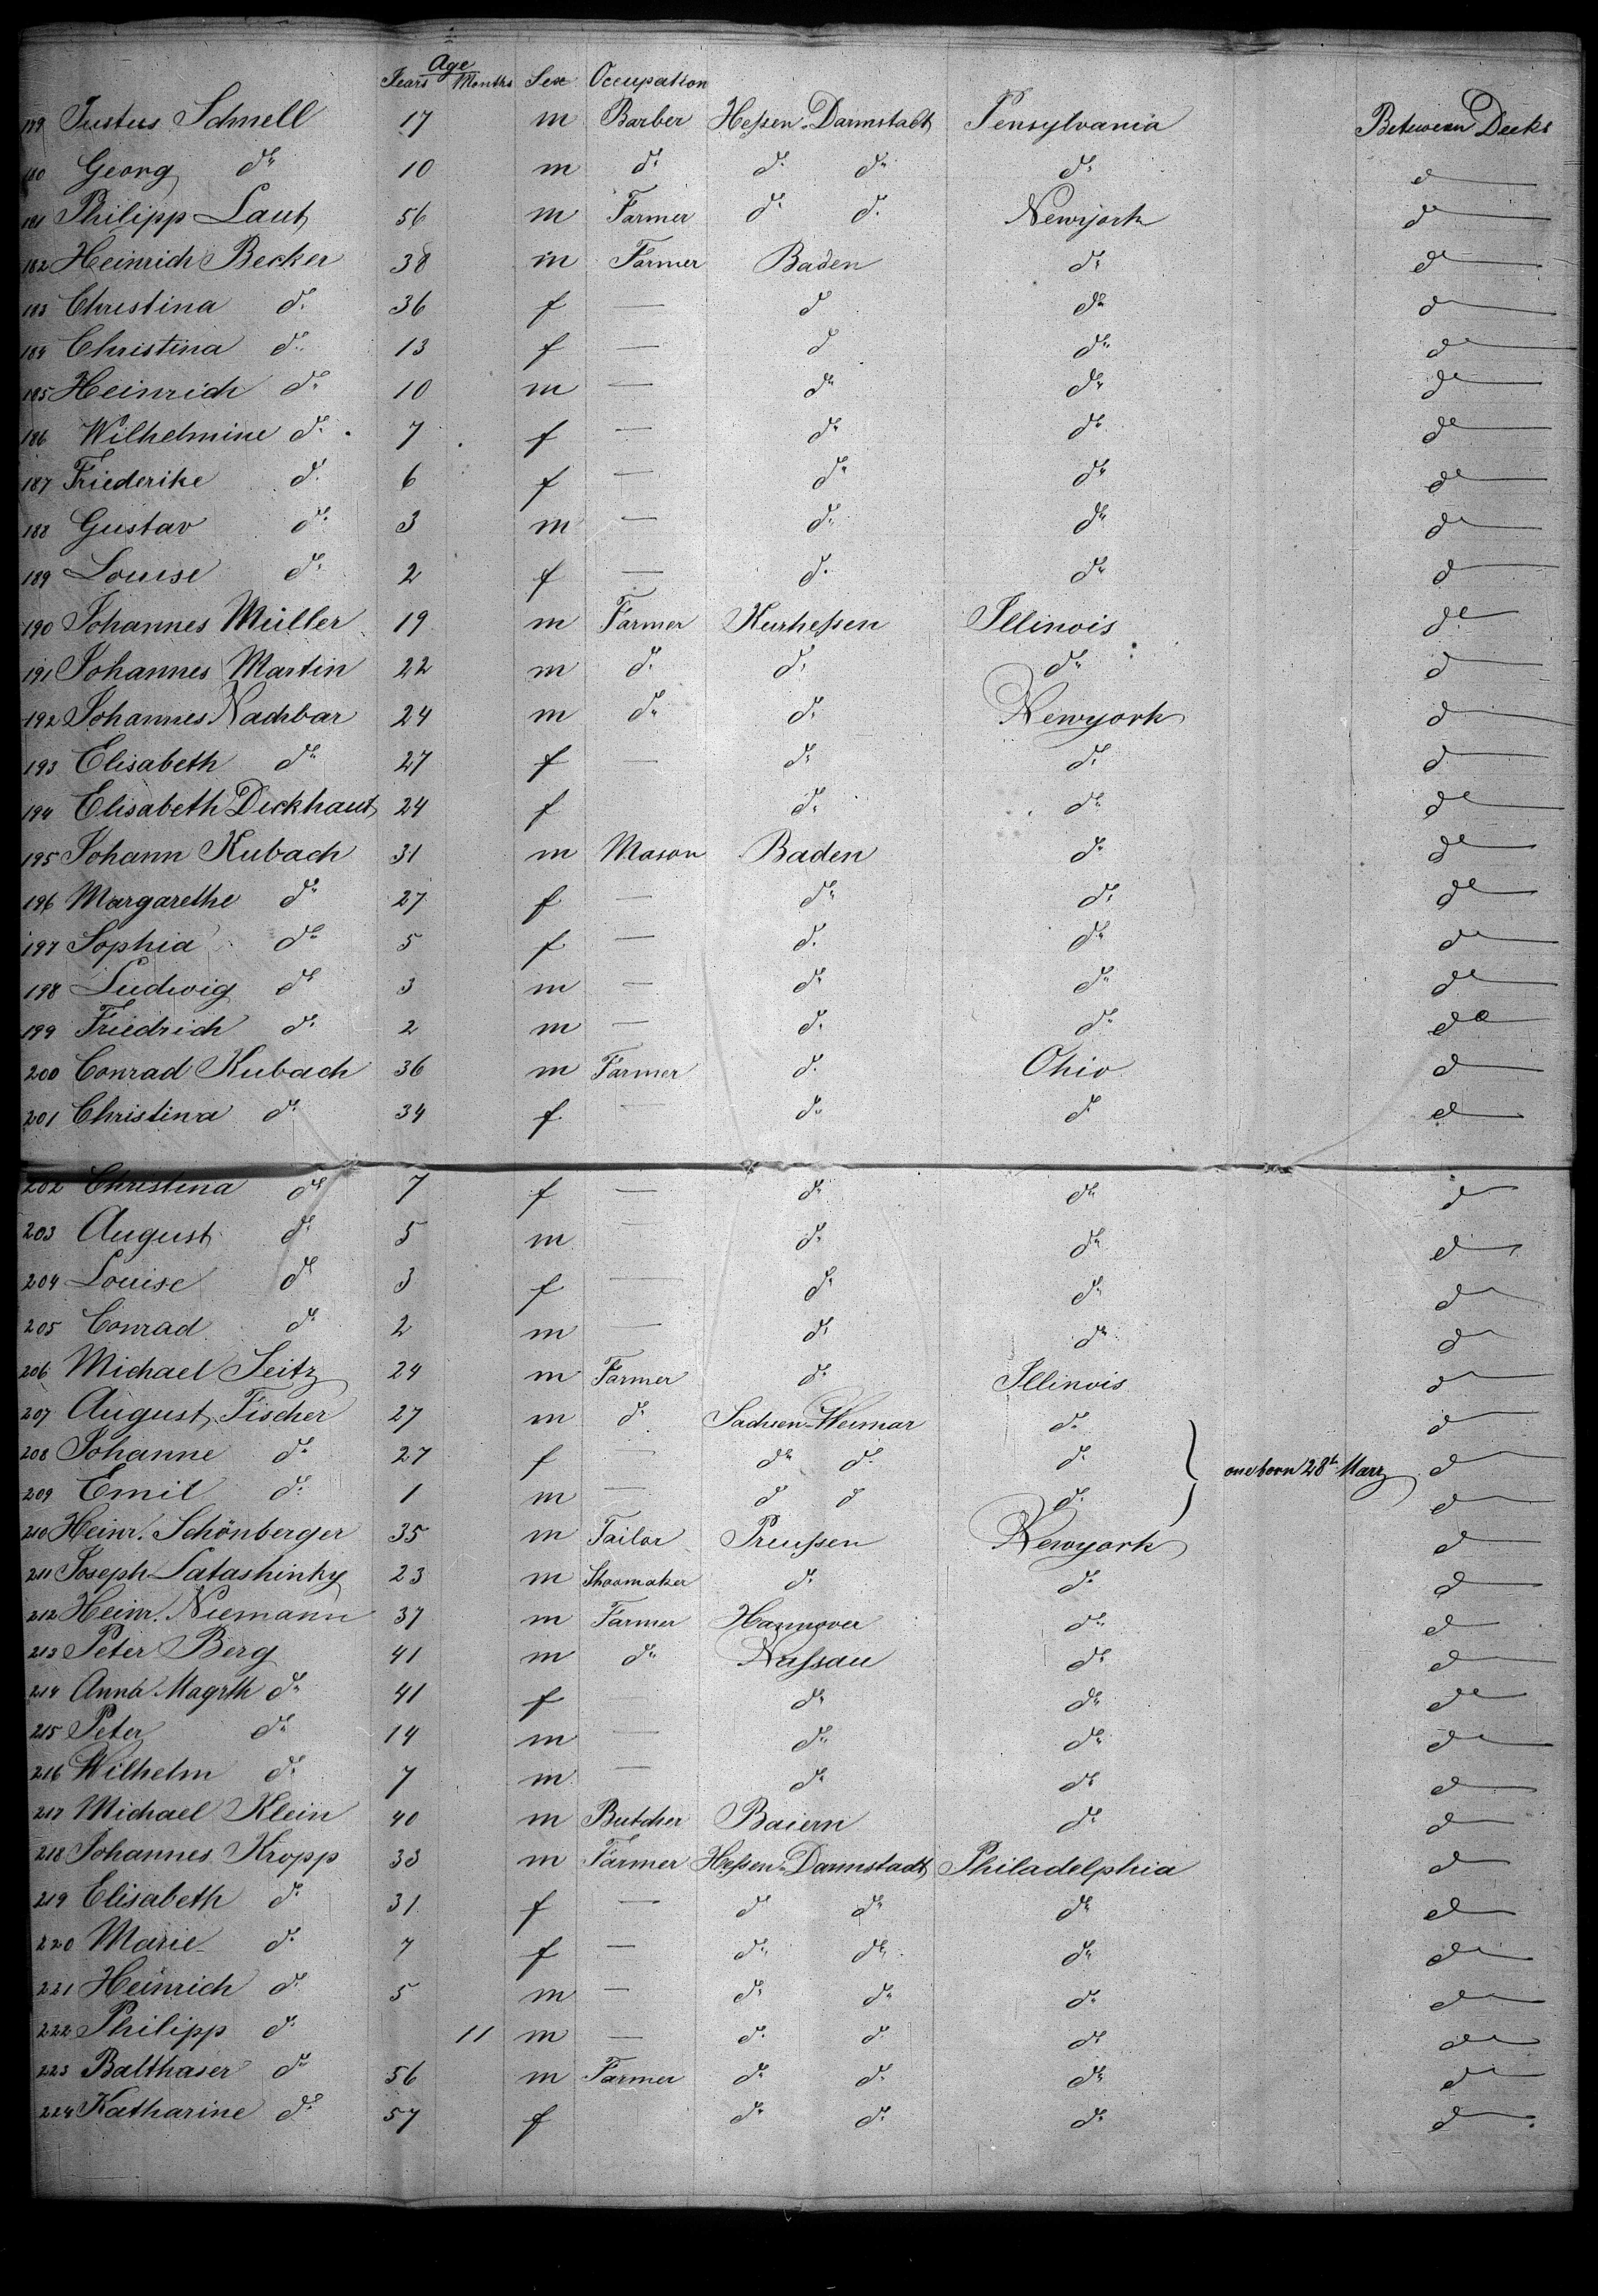 Age
Years Months Sex Occupation
179 Justus Schnell 17 m Barber Heßen-Darmstadt Pensylvania Between Decks
180 Georg do 10 m do do do do do
181 Philipp Laut 56 m Farmer do do Newyork do
182 Heinrich Becker 38 m Farmer Baden do do
183 Christina do 36 f — do do do
184 Christina do 13 f — do do do
185 Heinrich do 10 m — do do do
186 Wilhelmine do 7 f — do do do
187 Friederike do 6 f — do do do
188 Gustav do 3 m — do do do
189 Louise do 2 f — do do do
190 Johannes Müller 19 m Farmer Kurheßen Illinois do
191 Johannes Martin 22 m do do do do
192 Johannes Nachbar 24 m do do Newyork do
193 Elisabeth do 27 f — do do do
194 Elisabeth Dickhaut 24 f do do do
195 Johann Kubach 31 m Mason Baden do do
196 Margarethe do 27 f — do do do
197 Sophia do 5 f — do do do
198 Ludwig do 3 m — do do do
199 Friedrich do 2 m — do do do
200 Conrad Kubach 36 m Farmer do Ohio do
201 Christina do 34 f — do do do
202 Christina do 7 f — do do do
203 August do 5 m — do do do
204 Louise do 3 f — do do do
205 Conrad do 2 m — do do do
206 Michael Seitz 24 m Farmer do Illinois do
207 August Fischer 27 m do Sachsen-Weimar do do
208 Johanne do 27 f — do do do one born 28th Marz do
209 Emil do 1 m — do do do do
210 Heinr. Schönberger 35 m Tailor Preußen Newyork do
211 Joseph Latashinky 23 m Shoomaker do do do
212 Heinr. Niemann 37 m Farmer Hannover do do
213 Peter Berg 41 m do Naßau do do
214 Anna Magrth do 41 f — do do do
215 Peter do 14 m — do do do
216 Wilhelm do 7 m — do do do
217 Michael Klein 40 m Butcher Baiern do do
218 Johannes Kropp 33 m Farmer Heßen-Darmstadt Philadelphia do
219 Elisabeth do 31 f — do do do do
220 Marie do 7 f — do do do do
221 Heinrich do 5 m — do do do do
222 Philipp do 11 m — do do do do
223 Balthaser do 56 m Farmer do do do do
224 Katharine do 57 f do do do do